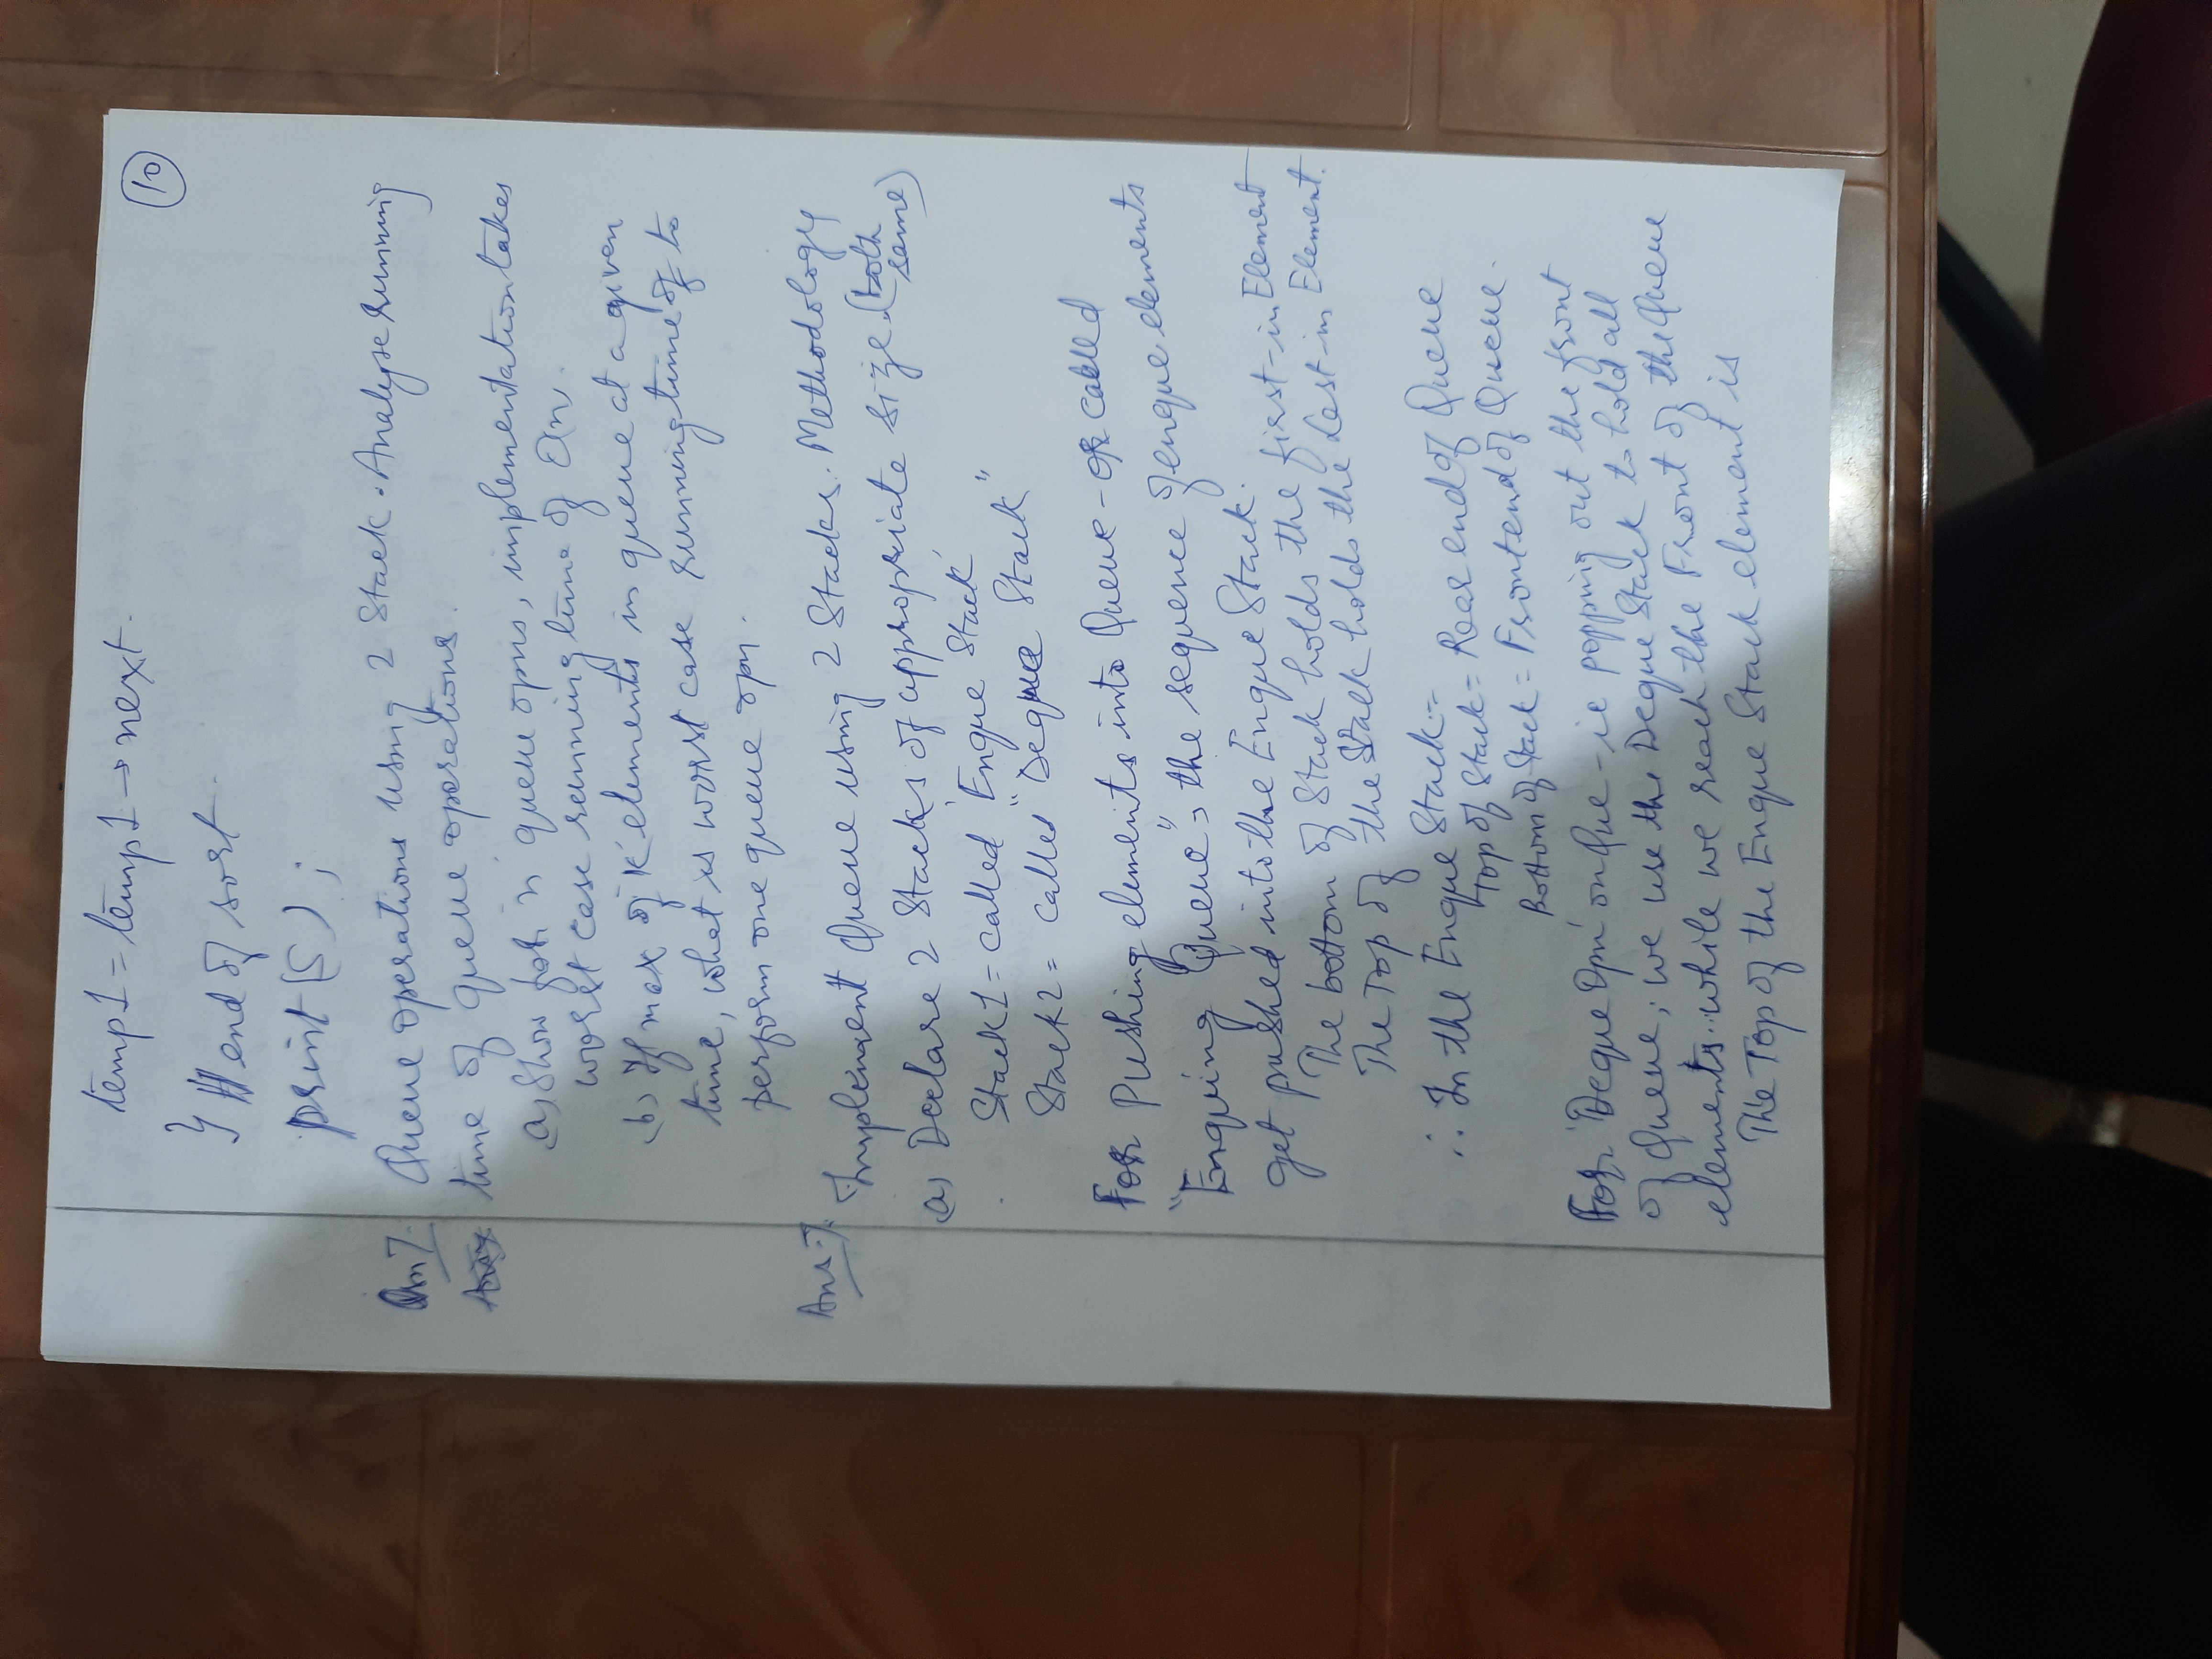 temp1 = temp1 → next.
10
} // end of sort.
print(S);
Qn 7. Queue operations using 2 Stack. Analyse running
time of queue operations.
(a) Show for n queue opns, implementation takes
worst case running time of On.
(b) If max of 'K' elements in queue at a given
time, what is worst case running time of to
perform one queue opn.
Ans-7. Implement Queue using 2 Stacks. Methodology
(a) Declare 2 Stacks of appropriate size. (both
same)
Stack1 = called 'Enque Stack'
Stack2 = called "Deque Stack"
For Pushing elements into Queue - or called
"Enquing Queue", the sequence of enque elements
get pushed into the Enque Stack.
The bottom of Stack holds the first-in Element
The Top of the Stack holds the Last-in Element.
∴ In the Enque Stack =
Top of Stack = Rear end of Queue
Bottom of Stack = Front end of Queue.
For 'Deque Opn' on Que - ie popping out the front
of Queue; we use the Deque Stack to hold all
elements.. while we reach the Front of the Queue
The Top of the Enque Stack element is